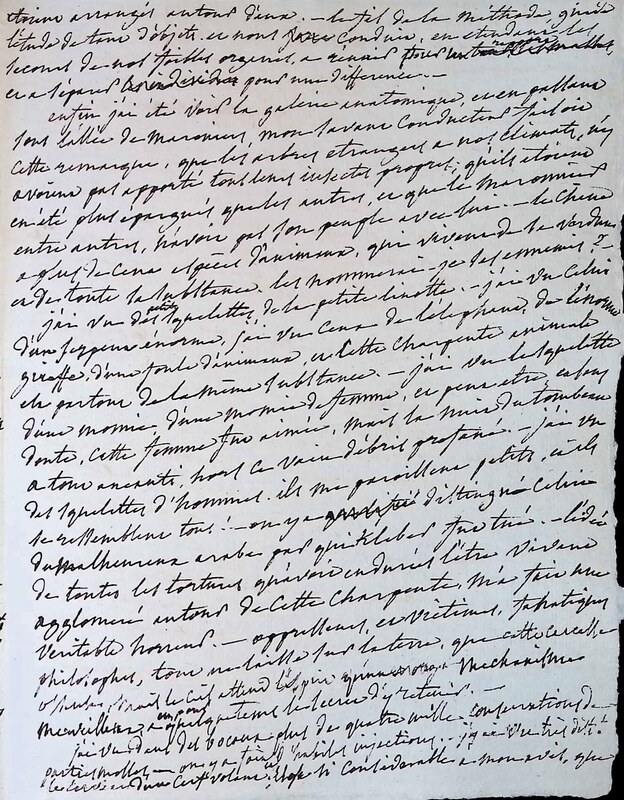 étoient arrangés autour d'eux. — le fil de la méthode guide
l'étude de tant d'objets et nous conduire, en étendant les
secours de nos foibles organes, a réuni tous
et a séparé les individus pour une différence. —
enfin j'ai été voir la galerie anatomique, et en passant
sous l'allée de maroniers, mon savant conducteur faisoit
cette remarque, que les arbres etrangers a nos climats, n'y
avoient pas apporté tous leurs insectes propres, qu'ils etoient
en été plus épargnés que les autres, et que le maronnier
entre autres, n'avoit pas son peuple avec lui. — le chêne
a plus de cent espèces d'animaux, qui vivent de sa verdure
et de toute sa substance. les nommerai-je des ennemis ?
j'ai vu des petits squelettes de la petite linotte. — j'ai vu celui
d'un serpent enorme, j'ai vu ceux de l'elephant, de l'énorme
giraffe, d'une foule d'animaux, et cette charpente animale
est partout de la même substance. — j'ai vu le squelette
d'une momie, d'une momie de femme, et peut etre, en son
doute, cette femme fut aimée, mais la nuit du tombeau
a tout aneanti, hors ce vain débris profané. — j'ai vu
des squelettes d'hommes. ils me paroissent petits, et ils
se ressemblent tous ! — on y a distingué celui
du malheureux arabe par qui Kleber fut tué. — l'idée
de toutes les tortures qu'avoit endurées l'être vivant
agglomeré autour de cette charpente, m'a fait une
veritable horreur. — oppresseurs, et victimes, fanatiques
philosophes, tout ne laisse sur la terre, que cette carcasse
mechanisme
merveilleux, a quelque tems le secret d'y retenir. —
j'ai vu dans des bocaux plus de quatre mille conservations de
parties molles — on y a fait d'habiles injections. j'y ai vu très dist.t
le cerveau d'une